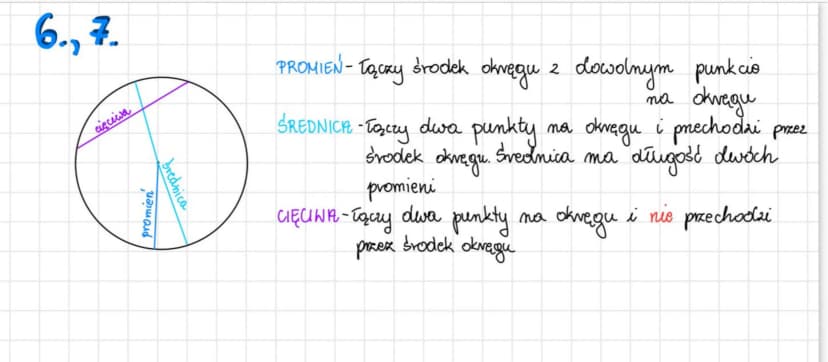 6., 7.
cięciwa
średnica
promień
PROMIEŃ - łączy środek okręgu z dowolnym punkcie
na okręgu
ŚREDNICA - łączy dwa punkty na okręgu i przechodzi przez
środek okręgu. Średnica ma długość dwóch
promieni
CIĘCIWA - łączy dwa punkty na okręgu i nie przechodzi
przez środek okręgu